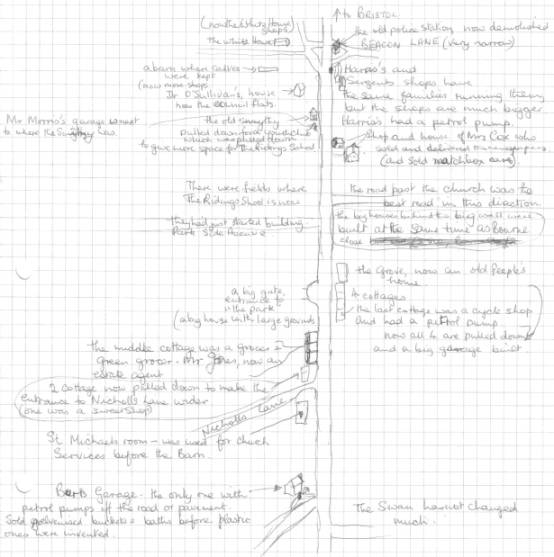 ↑→ BRISTOL
(now the White House
shops)
the White House
the old police station, now demolished
BEACON LANE (very narrow)
a barn where cattle
were kept
(now more shops
Dr O'Sullivan's house
now the council flats.
Harris's and
Sergents shops have
the same families running them
but the shops are much bigger
Harris's had a petrol pump.
Mr Morris's garage was next
to where the is now.
the old smithy
pulled down for a youth club
which was pulled down
to give more space for the Ridings School
shop and house of Mrs Cox who
sold and delivered newspapers.
(and sold matchbox cars)
There were fields where
The Ridings School is now
the road past the church was the
best road in this direction
They had just started building
Park Side Avenue
the big houses behind the big wall were
built at the same time as Bourne
close
the Grove, now an old people's
home
a big gate,
entrance to
the park
(a big house with large grounds
4 cottages
the last cottage was a cycle shop
and had a petrol pump
now all 4 are pulled down
and a big garage built
the middle cottage was a grocer &
green grocer - Mr Jones, now an
estate agent
2 cottage now pulled down to make the
entrance to Nicholls Lane wider
(one was a sweetshop)
Nicholls Lane
St Michaels room - was used for church
Services before the Barn.
Berts Garage - the only one with
petrol pumps off the road or pavement.
Sold galvenised buckets & baths before plastic
ones were invented.
The Swan has not changed
much.